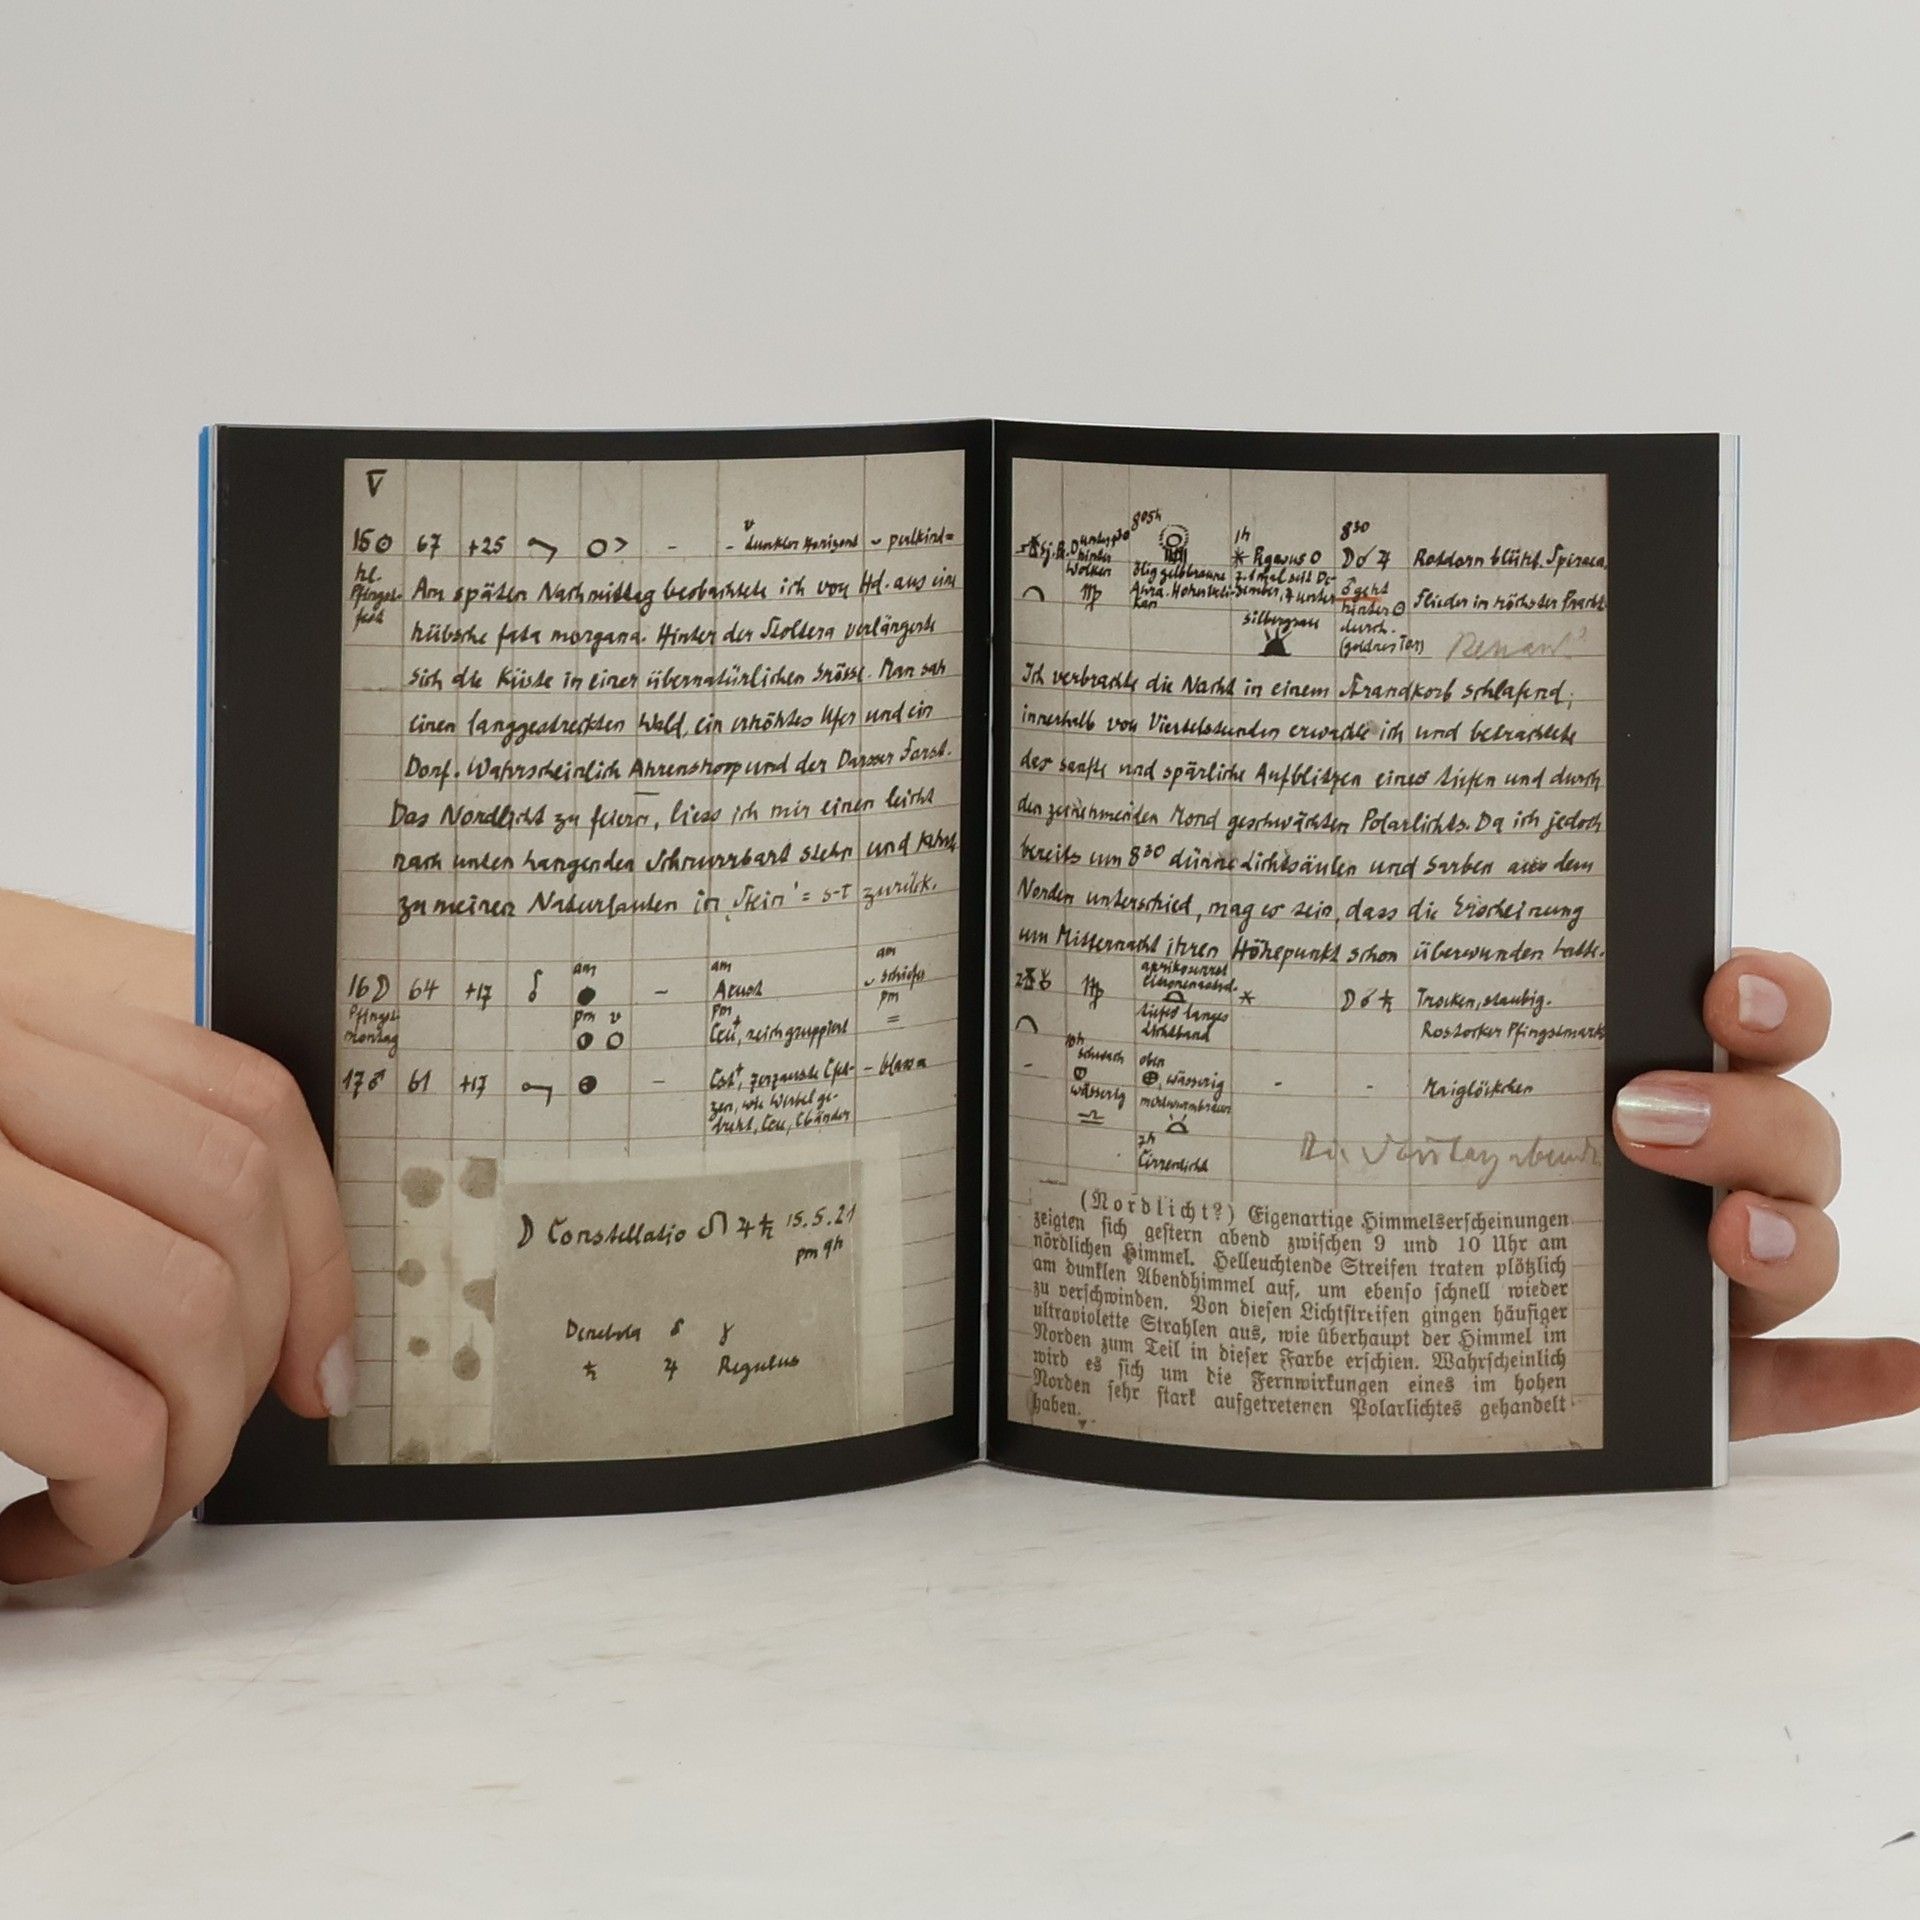 V
15 ☉ 67 +25 - - dunkler Horizont
hl.
Pfingst-
fest
Am späten Nachmittag beobachtete ich von Hd. aus eine
hübsche fata morgana. Hinter der Stoltera verlängerte
sich die Küste in einer übernatürlichen Grösse. Man sah
einen langgestreckten Wald, ein erhöhtes Ufer und ein
Dorf. Wahrscheinlich Ahrenshoop und der Darsser Forst.
Das Nordlicht zu feiern, liess ich mir einen leicht
nach unten hangenden Schnurrbart stehn und kehrte
zu meinen Naturlauten in 'Stein' = s-t zurück.
am am am
16 ☽ 64 +17 - schiefer
Pfingst-
montag
pm v pm pm
Ccu, reich gruppiert =
17 ♂ 61 +17 - Cst, zerzauste
zen, wie Wirbel ge-
dreht, Ccu,
☽ Constellatio ♌ ♃ ♄ 15.5.21
pm 9h
Denebola δ γ
♄ ♃ Regulus
805h 1h 830
hinter
Wolken
♍
ölig gelbbraune
* Pegasus
z. 1 mal seit De-
zember, ☿ unter
silbergrau
☽ ☌ ♃
♂ geht
hinter ☉
durch.
(goldnes Tor)
Rotdorn blüht. Spiraea.
Flieder in höchster Pracht
Ich verbrachte die Nacht in einem Strandkorb schlafend;
innerhalb von Viertelstunden erwachte ich und betrachtete
das sanfte und spärliche Aufblitzen eines tiefen und durch
den zunehmenden Mond geschwächten Polarlichts. Da ich jedoch
bereits um 830 dünne Lichtsäulen und Garben aus dem
Norden unterschied, mag es sein, dass die Erscheinung
um Mitternacht ihren Höhepunkt schon überwunden hatte.
aprikosenrot
♍ * ☽ ☌ ♄ Trocken, staubig.
tiefes langes
Lichtband
Rostocker Pfingstmarkt
10h
schwach
wässerig
♎
oben
⊕, wässerig
- - Maiglöckchen
7h
Cirrenlicht
(Nordlicht?) Eigenartige Himmelserscheinungen
zeigten sich gestern abend zwischen 9 und 10 Uhr am
nördlichen Himmel. Helleuchtende Streifen traten plötzlich
am dunklen Abendhimmel auf, um ebenso schnell wieder
zu verschwinden. Von diesen Lichtstreifen gingen häufiger
ultraviolette Strahlen aus, wie überhaupt der Himmel im
Norden zum Teil in dieser Farbe erschien. Wahrscheinlich
wird es sich um die Fernwirkungen eines im hohen
Norden sehr stark aufgetretenen Polarlichtes gehandelt
haben.